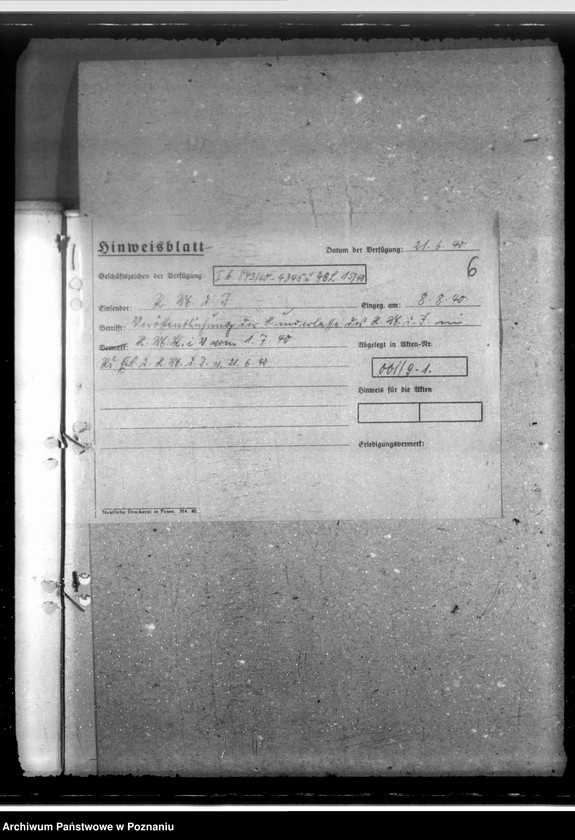 Hinweisblatt
Datum der Verfügung: 21. 6. 40
6
Geschäftszeichen der Verfügung:
Einsender: R. M. d. I
Eingeg. am: 8. 8. 40
Betrifft: Veröffentlichung der Runderlasse des R. M. d. I im
Vermerk: vom 1. 7. 40
Abgelegt in Akten-Nr.
R. M. d. I. v. 21. 6. 40
001/9-1.
Hinweis für die Akten
Erledigungsvermerk:
Staatliche Druckerei in Posen
Archiwum Państwowe w Poznaniu